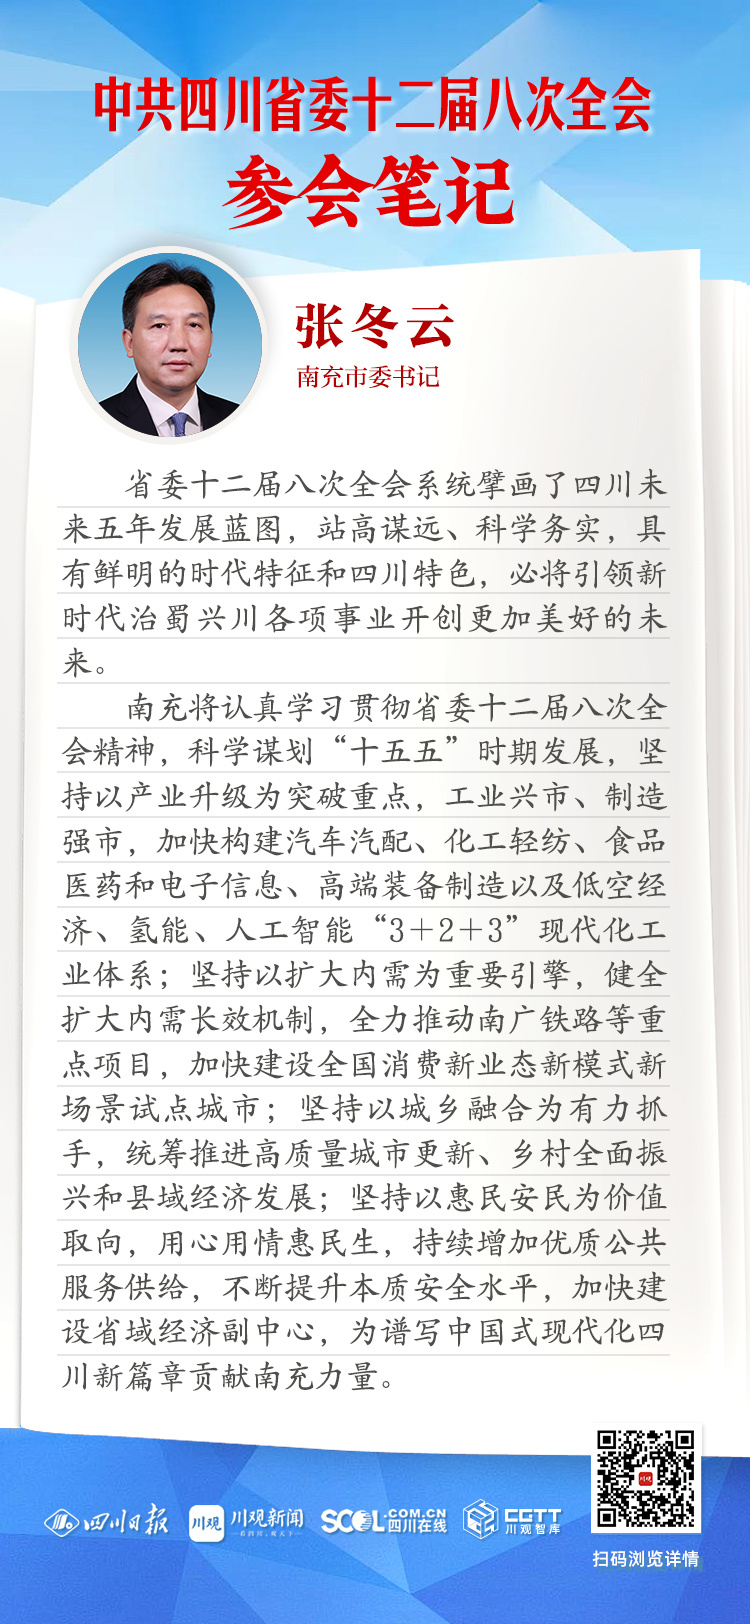 中共四川省委十二届八次全会
参会笔记
张冬云
南充市委书记
省委十二届八次全会系统擘画了四川未
来五年发展蓝图，站高谋远、科学务实，具
有鲜明的时代特征和四川特色，必将引领新
时代治蜀兴川各项事业开创更加美好的未
来。
南充将认真学习贯彻省委十二届八次全
会精神，科学谋划“十五五”时期发展，坚
持以产业升级为突破重点，工业兴市、制造
强市，加快构建汽车汽配、化工轻纺、食品
医药和电子信息、高端装备制造以及低空经
济、氢能、人工智能“3+2+3”现代化工
业体系；坚持以扩大内需为重要引擎，健全
扩大内需长效机制，全力推动南广铁路等重
点项目，加快建设全国消费新业态新模式新
场景试点城市；坚持以城乡融合为有力抓
手，统筹推进高质量城市更新、乡村全面振
兴和县域经济发展；坚持以惠民安民为价值
取向，用心用情惠民生，持续增加优质公共
服务供给，不断提升本质安全水平，加快建
设省域经济副中心，为谱写中国式现代化四
川新篇章贡献南充力量。
川观
四川日报
川观
川观新闻
SCOL.COM.CN
四川在线
CGTT
川观智库
扫码浏览详情